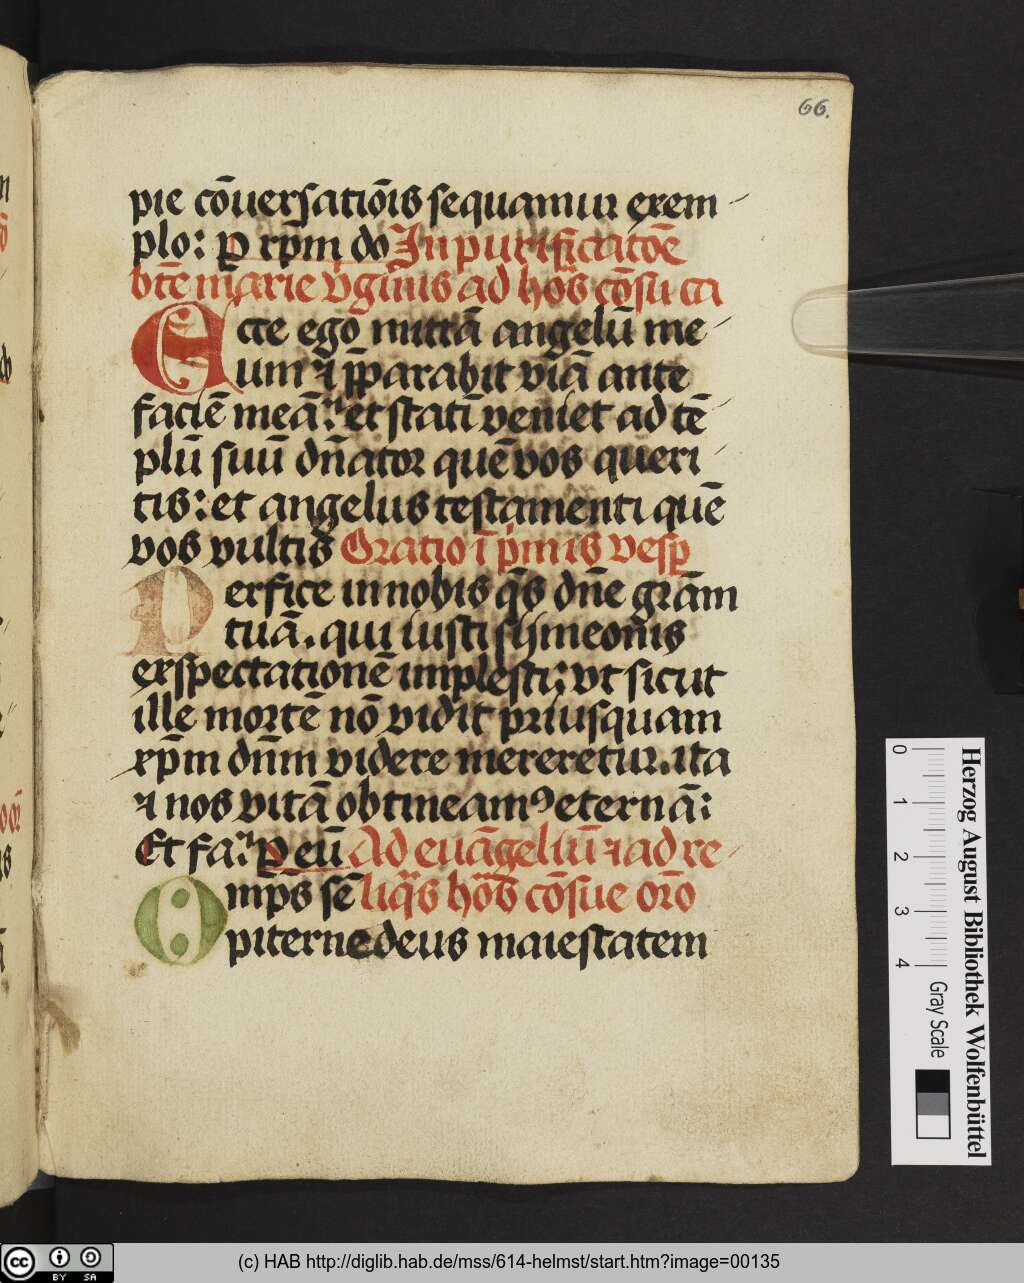 66.
pie cōuersatiōis sequamur exem
plo: P xp̄m do In purificatōe
bt̄e marie v̄ginis ad hoͣs cōsu ca
Ecce ego mittā angelū me
um ⁊ p̄parabit viā ante
faciē meā: et statī veniet ad tē
plū suū dn̄ator quē vos queri
tis: et angelus testamenti quē
vos vultis Oratio ī p̄mis vesp̄
Perfice in nobis q̄s dn̄e grām
tuā. qui iusti symeonis
exspectationē implesti: vt sicut
ille mortē nō vidit priusquam
xp̄m dn̄m videre mereretur. ita
⁊ nos vitā obtineamꝰ eternā:
Et fa. P eū Ad euāgeliū ⁊ ad re
Omps sē liq̄s hoͣs cōsue orō
piterne deus maiestatem
Herzog August Bibliothek Wolfenbüttel
0 1 2 3 4 Gray Scale
cc BY SA
(c) HAB http://diglib.hab.de/mss/614-helmst/start.htm?image=00135